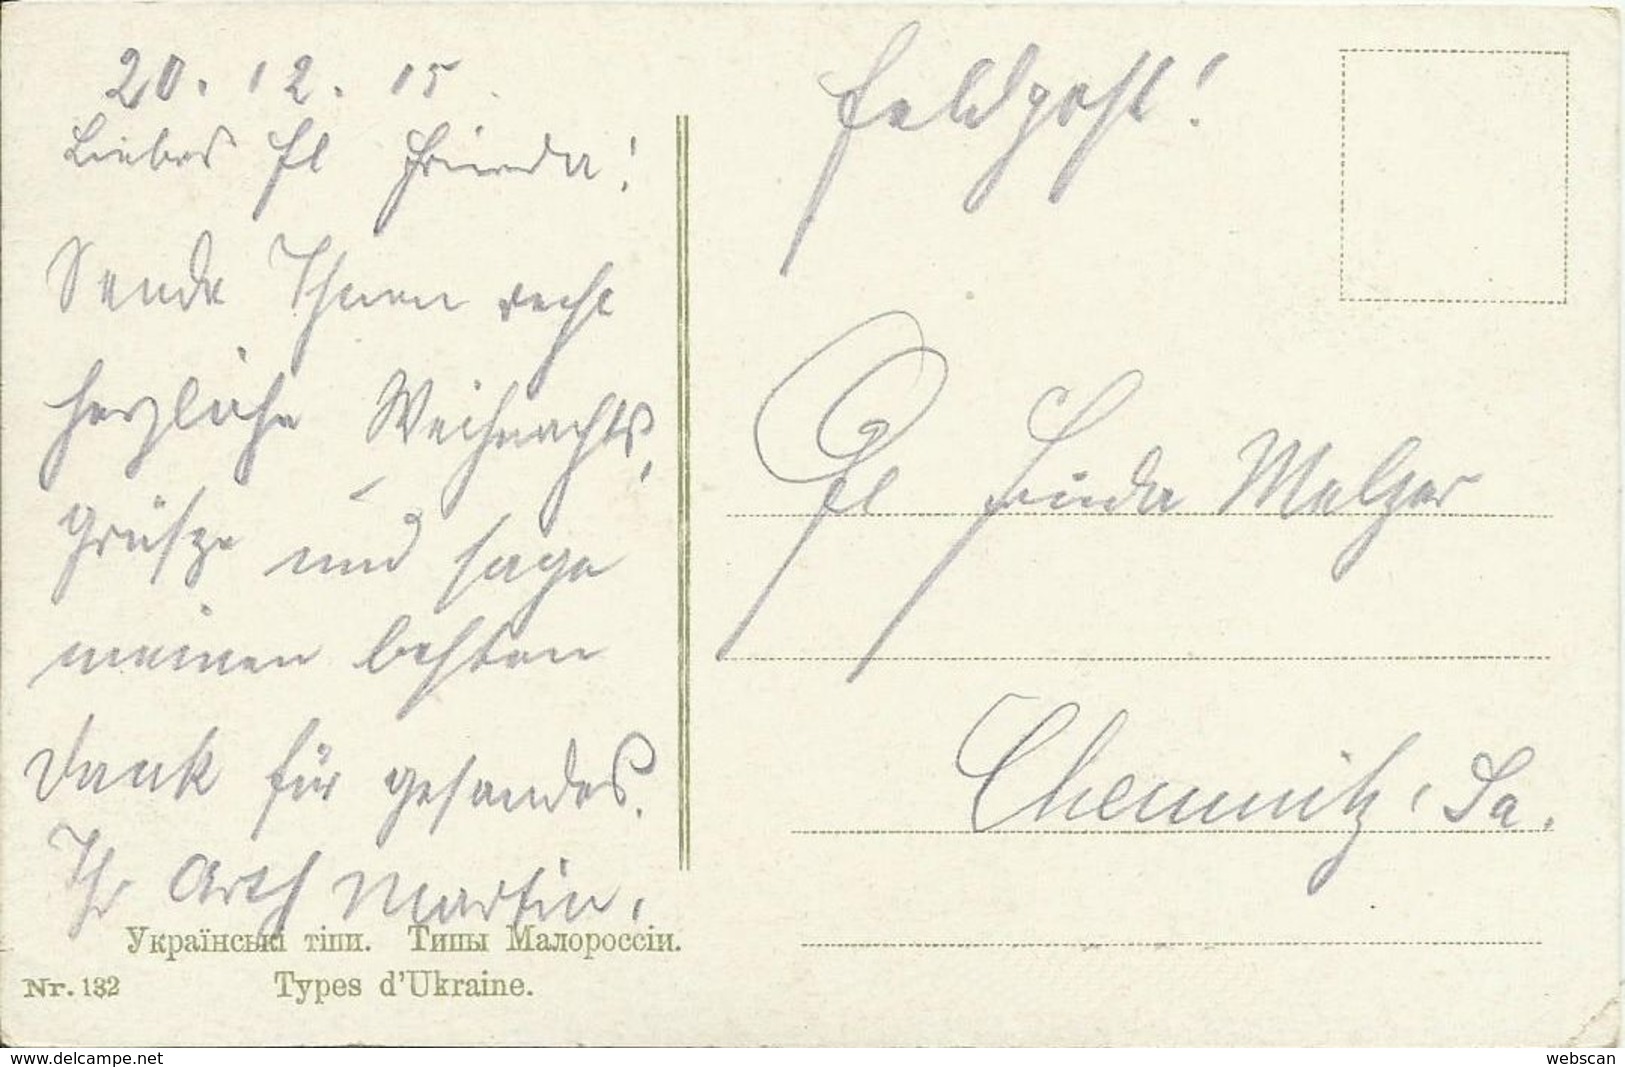 20. 12. 15
Liebes Fl Frieda!
Sende Ihnen recht
herzliche Weihnachts,
grüsze und sage
meinen besten
Dank für gesandes.
Ihr Arth Martin.
Українські тіпи. Типы Малороссіи.
Nr. 132 Types d'Ukraine.
Feldpost!
Fl Frieda Melzer
Chemnitz, Sa.
www.delcampe.net
webscan